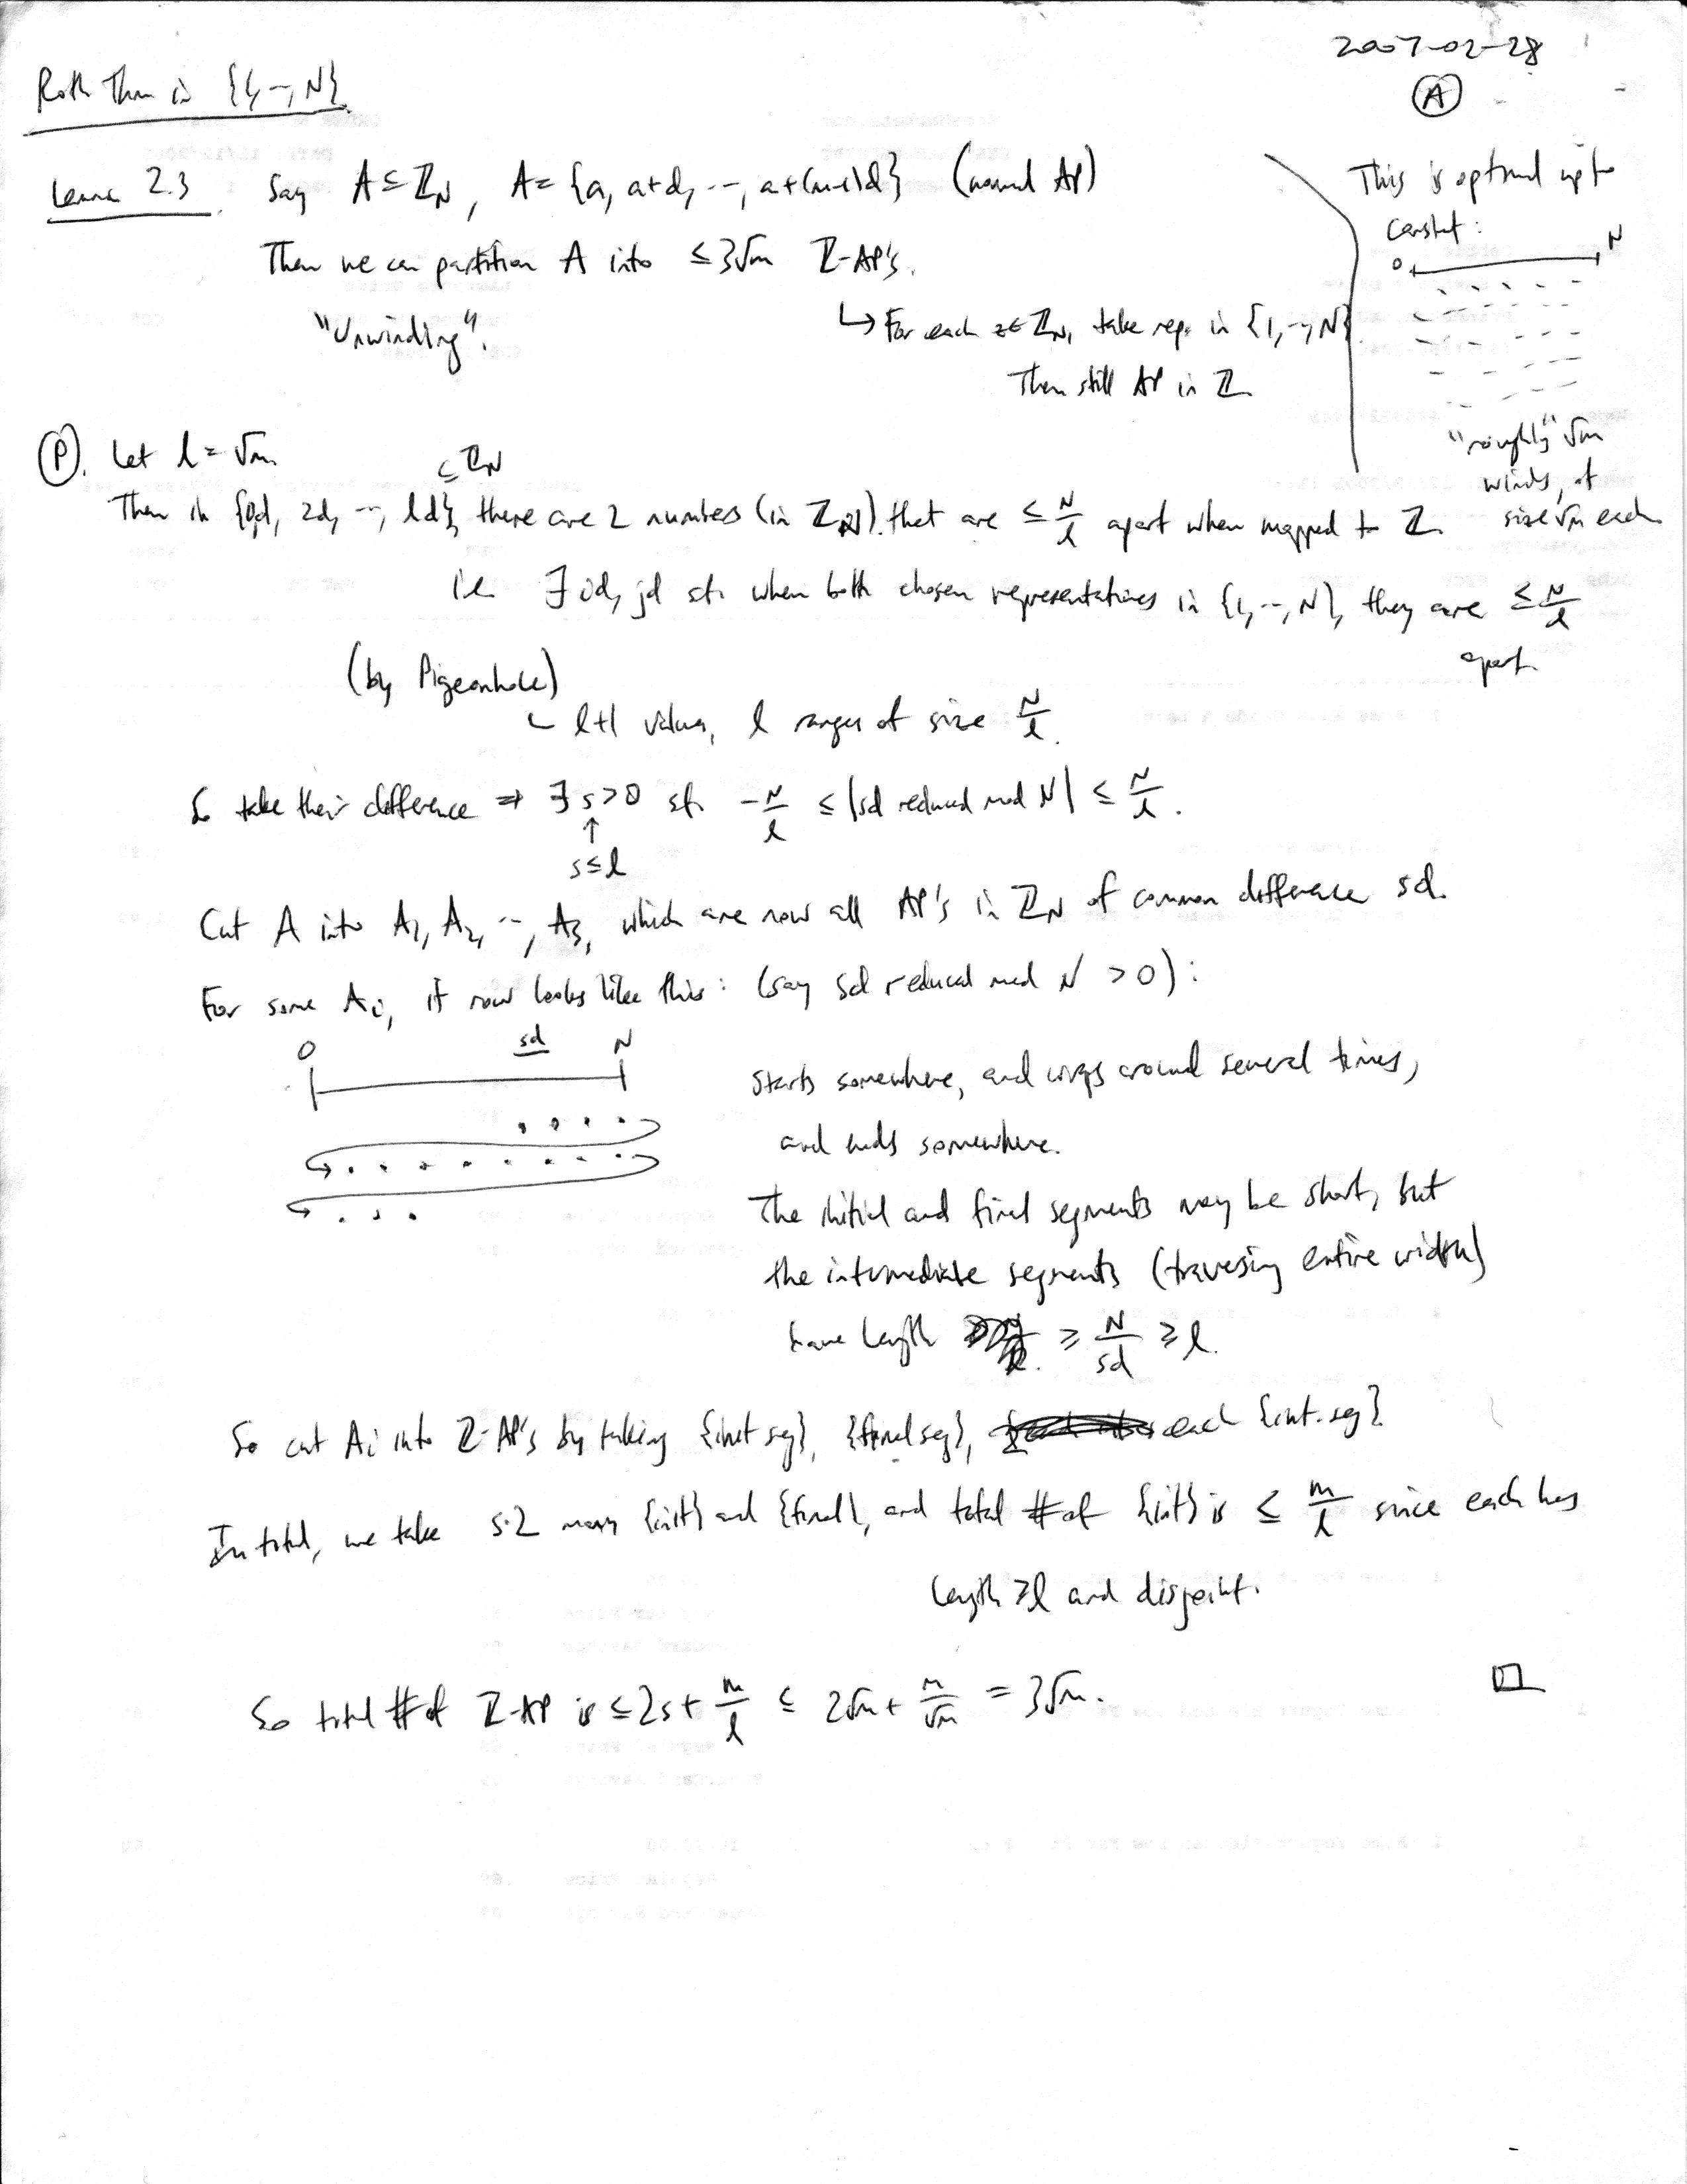 2007-02-28
(A)
Roth Thm in {1,--,N}
Lemma 2.3. Say A ⊆ ℤ_N, A = {a, a+d, --, a+(m-1)d} (normal AP)
Then we can partition A into ≤ 3√m ℤ-AP's.
"Unwinding".
↳ For each z ∈ ℤ_N, take rep. in {1,--,N}
Then still AP in ℤ
This is optimal up to
constant:
0 N
"roughly" √m
winds, of
size √m each
(P). Let l = √m.
Then in {0d, 2d, --, ld} ⊆ ℤ_N there are 2 numbers (in ℤ_N) that are ≤ N/l apart when mapped to ℤ.
i.e. ∃ id, jd st. when both chosen representatives in {1,--,N}, they are ≤ N/l
apart.
(by Pigeonhole)
↳ l+1 values, l ranges of size N/l.
So take their difference ⇒ ∃ s>0 st. -N/l ≤ |sd reduced mod N| ≤ N/l.
↑
s≤l
Cut A into A₁, A₂, --, A₃, which are now all AP's in ℤ_N of common difference sd.
For some Aᵢ, it now looks like this: (say sd reduced mod N > 0):
0 sd N
Starts somewhere, and wraps around several times,
and ends somewhere.
The initial and final segments may be short, but
the intermediate segments (traversing entire width)
have length ≥ N/sd ≥ l.
So cut Aᵢ into ℤ-AP's by taking {init seg}, {final seg}, each {int. seg}
In total, we take s·2 many {init} and {final}, and total # of {int} is ≤ m/l since each has
length ≥l and disjoint.
So total # of ℤ-AP is ≤ 2s + m/l ≤ 2√m + m/√m = 3√m. □